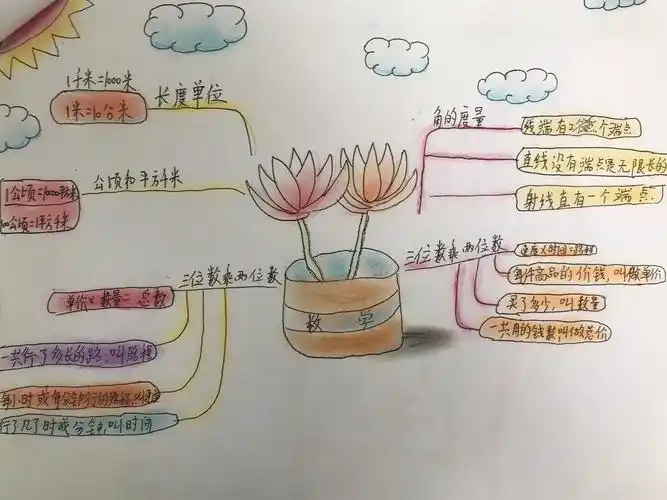 1千米=1000米
1米=10分米
长度单位
公顷和平方千米
1公顷=10000平方米
100公顷=1平方千米
三位数乘两位数
单价×数量=总数
一共行了多长的路,叫路程
每小时或每分钟行的路程,叫速度
行了几小时或分钟,叫时间
数学
角的度量
线端有2个端点
直线没有端点是无限长的
射线直有一个端点
三位数乘两位数
速度×时间=路程
每件商品的价钱,叫做单价
买了多少,叫数量
一共用的钱数,叫做总价